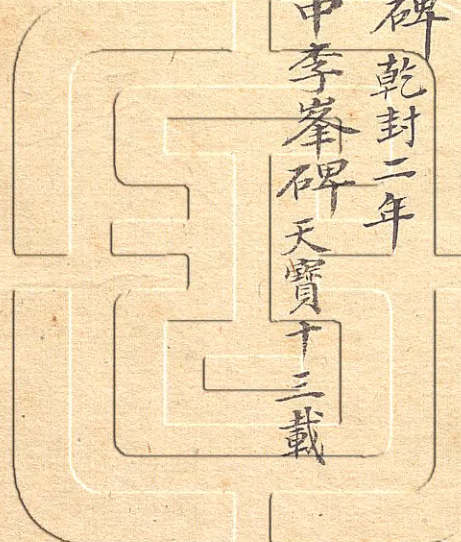 碑 乾封二年
中李峯碑 天寶十三載